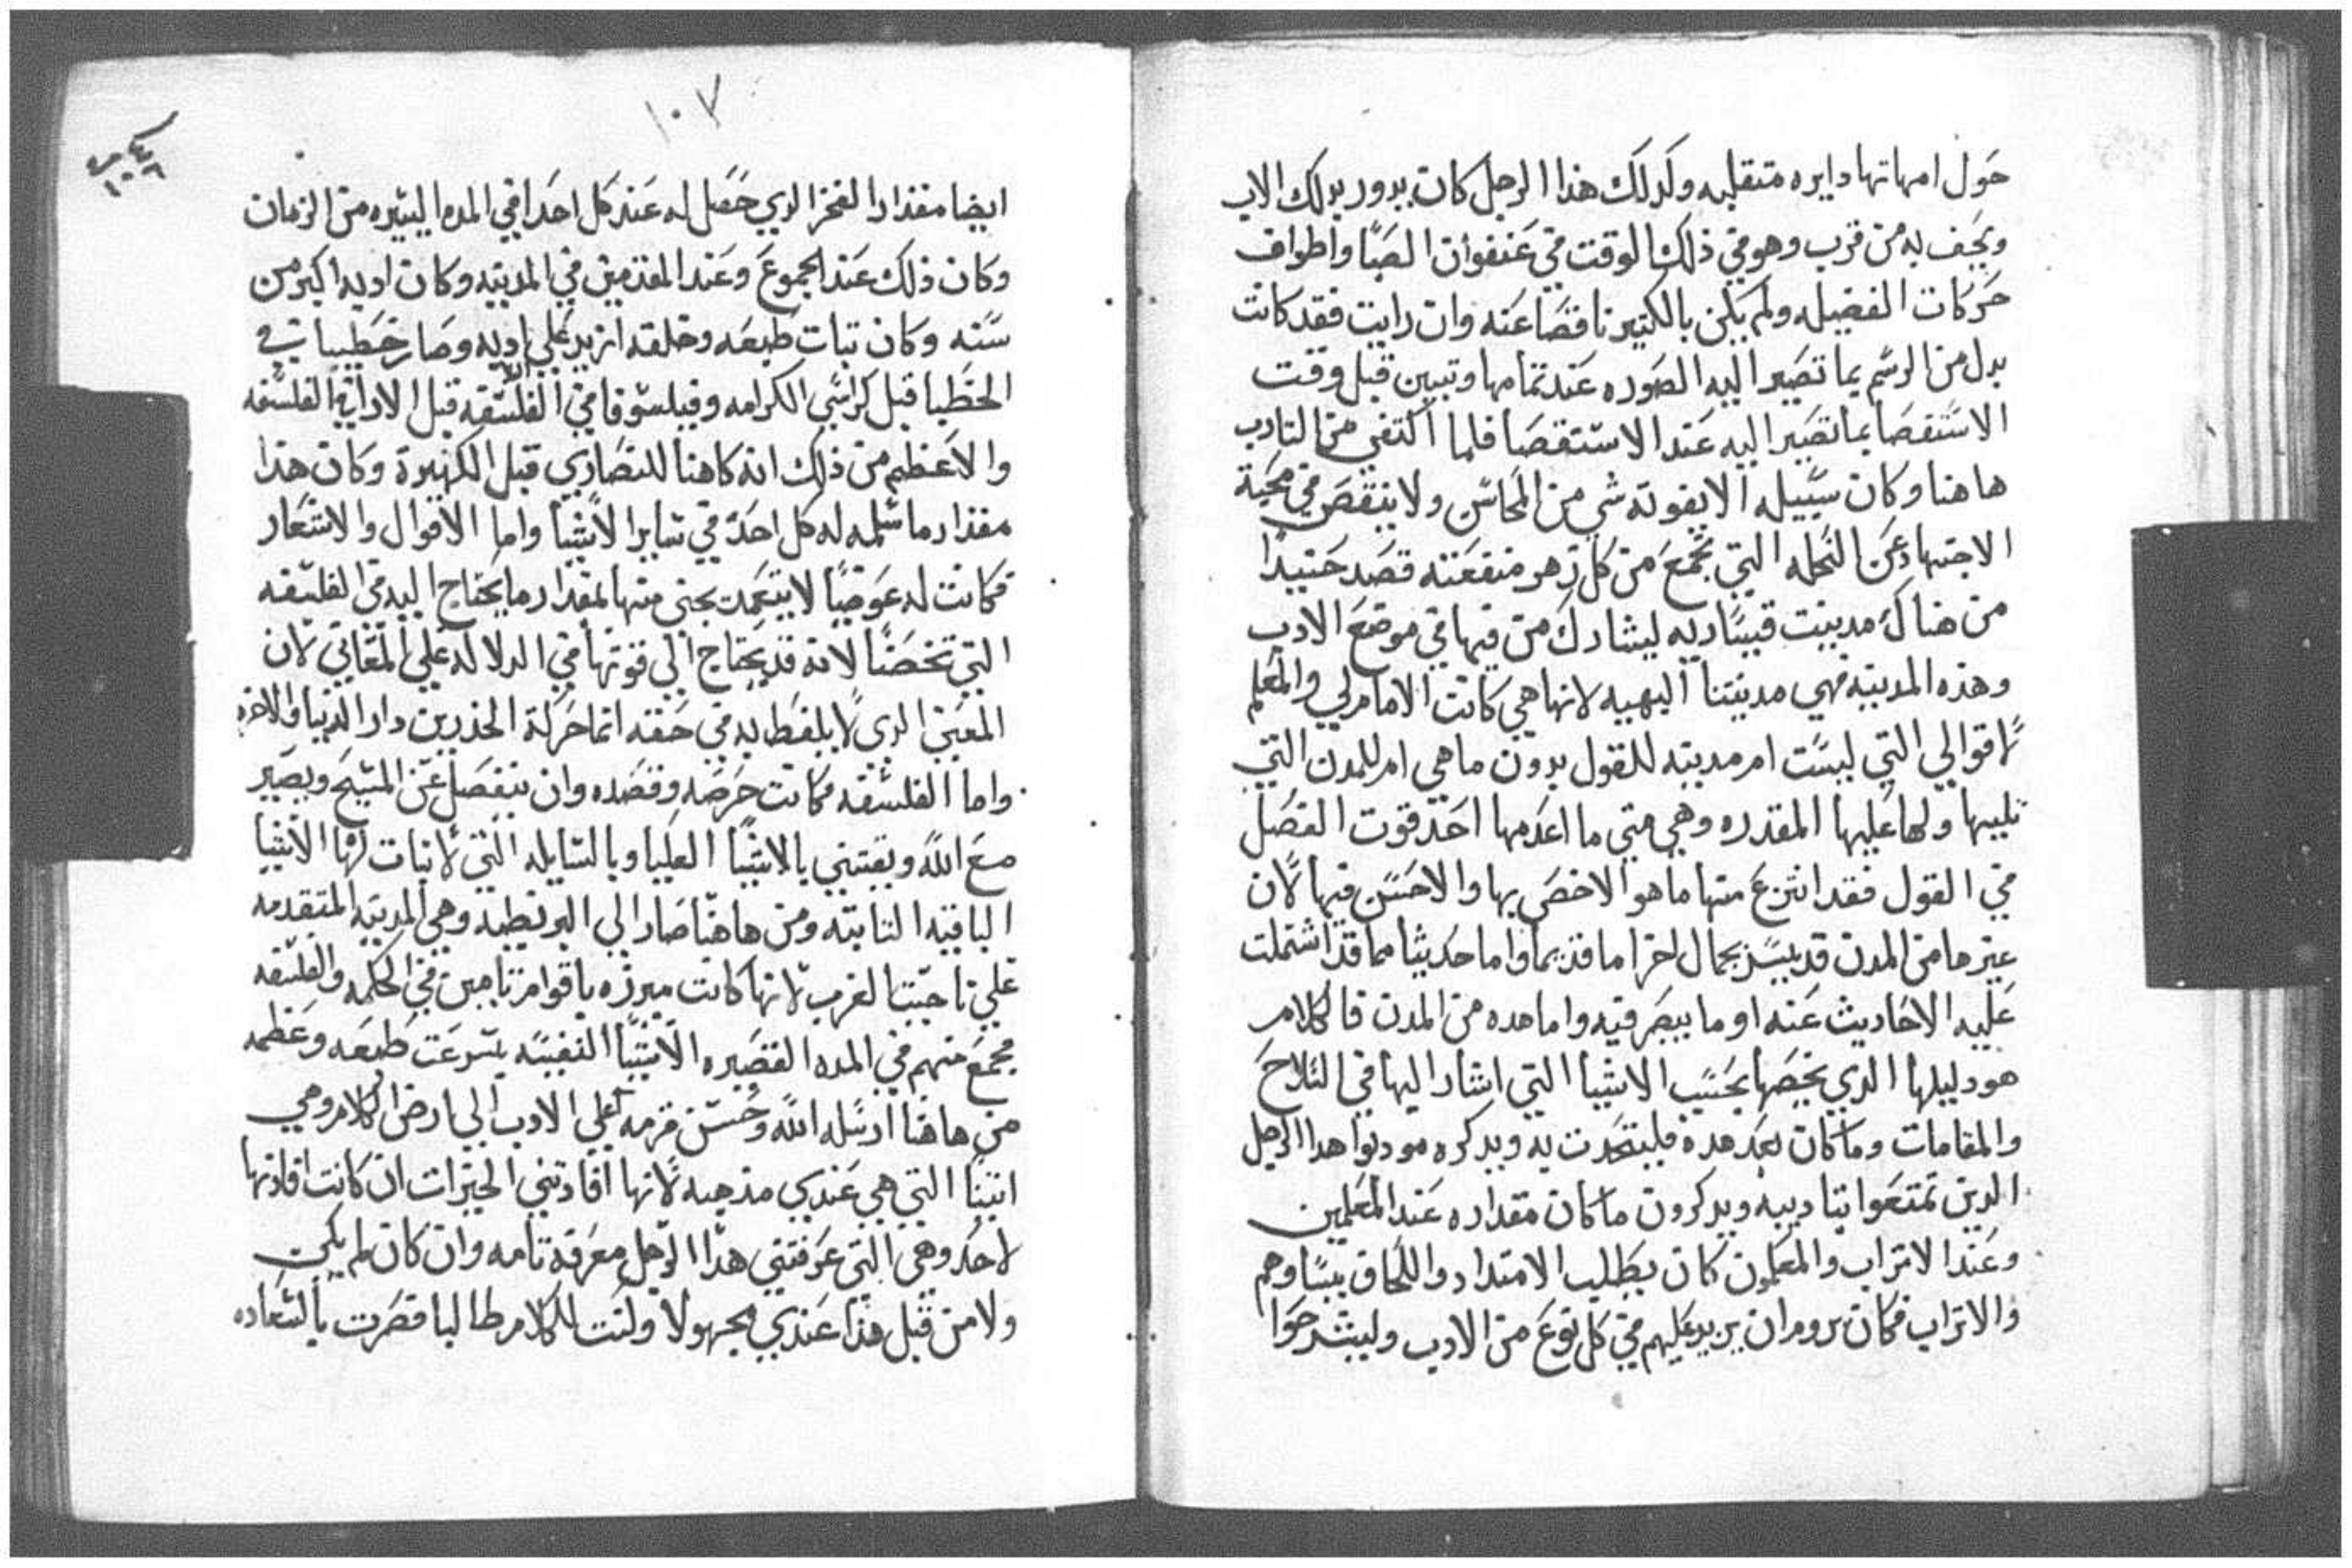 حول امهاتها دايره متقلبه وكدلك هذا الرجل كان بدور بدلك الاب
ويحف به من قرب وهو في ذلك الوقت في عنفوان الصبا واطواف
حركات الفضيله ولم يكن بالكتير ناقصا عنه وان رايت فقد كانت
بدل من الرسم بما تصير اليه الصوره عند تمامها وتبين قبل وقت
الاستقصا بما تصير اليه عند الاستقصا فلما اكتفى من التادب
هاهنا وكان سبيله الا يفوته شي من المحاسن ولا ينقص في محبة
الاجتهاد عن النحله التي تجمع من كل زهر منفعته قصد حينيدا
من هناك مدينت قيساريه ليشارك من فيها في موضع الادب
وهذه المدينه فهي مدينتنا البهيه لانها هي كانت الامام لي والمعلم
لاقوالي التي ليست ام مدينه للقول بدون ما هي ام للمدن التي
تليها ولها عليها المقدره وهي متى ما اعدمها احد قوت الفضل
في القول فقد انتزع منها ما هو الاخص بها والاحسن فيها لان
غيرها من المدن قد يسر بجمال اخر اما قديما واما حديثا مما قد اشتملت
عليه الاحاديث عنه او ما يبصر فيه واما هده من المدن فالكلام
هو دليلها الدي يخصها بحسب الاشيا التي اشار اليها في التلاح
والمقامات وما كان بعد هدة فليتحدت به ويدكره مودبوا هدا الرجل
الدين تمتعوا بتاديبه ويدكرون ما كان مقداره عند المعلمين
وعند الاتراب والمعلمون كان يطلب الامتداد واللحاق بيساوهم
والاتراب فكان يروم ان يزيد عليهم في كل نوع من الادب وليشرحوا
١٠٧
ايضا مقدار الفخر الدي حصل له عند كل احد افي المده اليسيره من الزمان
وكان ذلك عند الجموع وعند المقدمين في المدينه وكان ادبه اكبر من
سنه وكان تبات طبعه وخلقه ازيد على ادبه وصار خطيبا في
الخطبا قبل كراسي الكرامه وفيلسوفا في الفلسفه قبل الارا في الفلسفه
والاعظم من ذلك انه كاهنا للنصاري قبل الكهنوة وكان هذا
مقدار ما سلمه له كل احد في ساير الاشيا واما الاقوال والاشعار
فكانت له عوضيا لا يتعمد يجني منها بمقدار ما يحتاج اليه في الفلسفه
التي تخصنا لانه قد يحتاج الى قوتها في الدلاله على المعاني لان
المعنى الدي لا يلفظ به في حقه انما حركة الخدرين دار الدنيا والاخره
واما الفلسفه فكانت حرصه وقصده وان ينفصل عن المسيح ويصير
مع الله ويقتني بالاشيا العليا وبالسايله التي لا تبات لها الاشيا
الباقيه الثابته ومن هاهنا صار الي البرنطيه وهي المدينه المتقدمه
على ناحيتنا لغرب لانها كانت مبرزه باقوام تامين في الحكمه والفلسفه
فجمع منهم في المده القصيره الاشيا النفيسه بسرعت طبعه وعظمه
من هاهنا ارسله الله وحسن قرمه على الادب الي ارض الكلام وهي
اتينا التي هي عندي مذهبه لانها افادتني الخيرات ان كانت افادتها
لاحد وهي التي عرفتني هدا الرجل معرفة تامه وان كان لم يكن
ولا من قبل هذا عندي مجهولا ولست للكلام طالبا فصرت بالسعاده